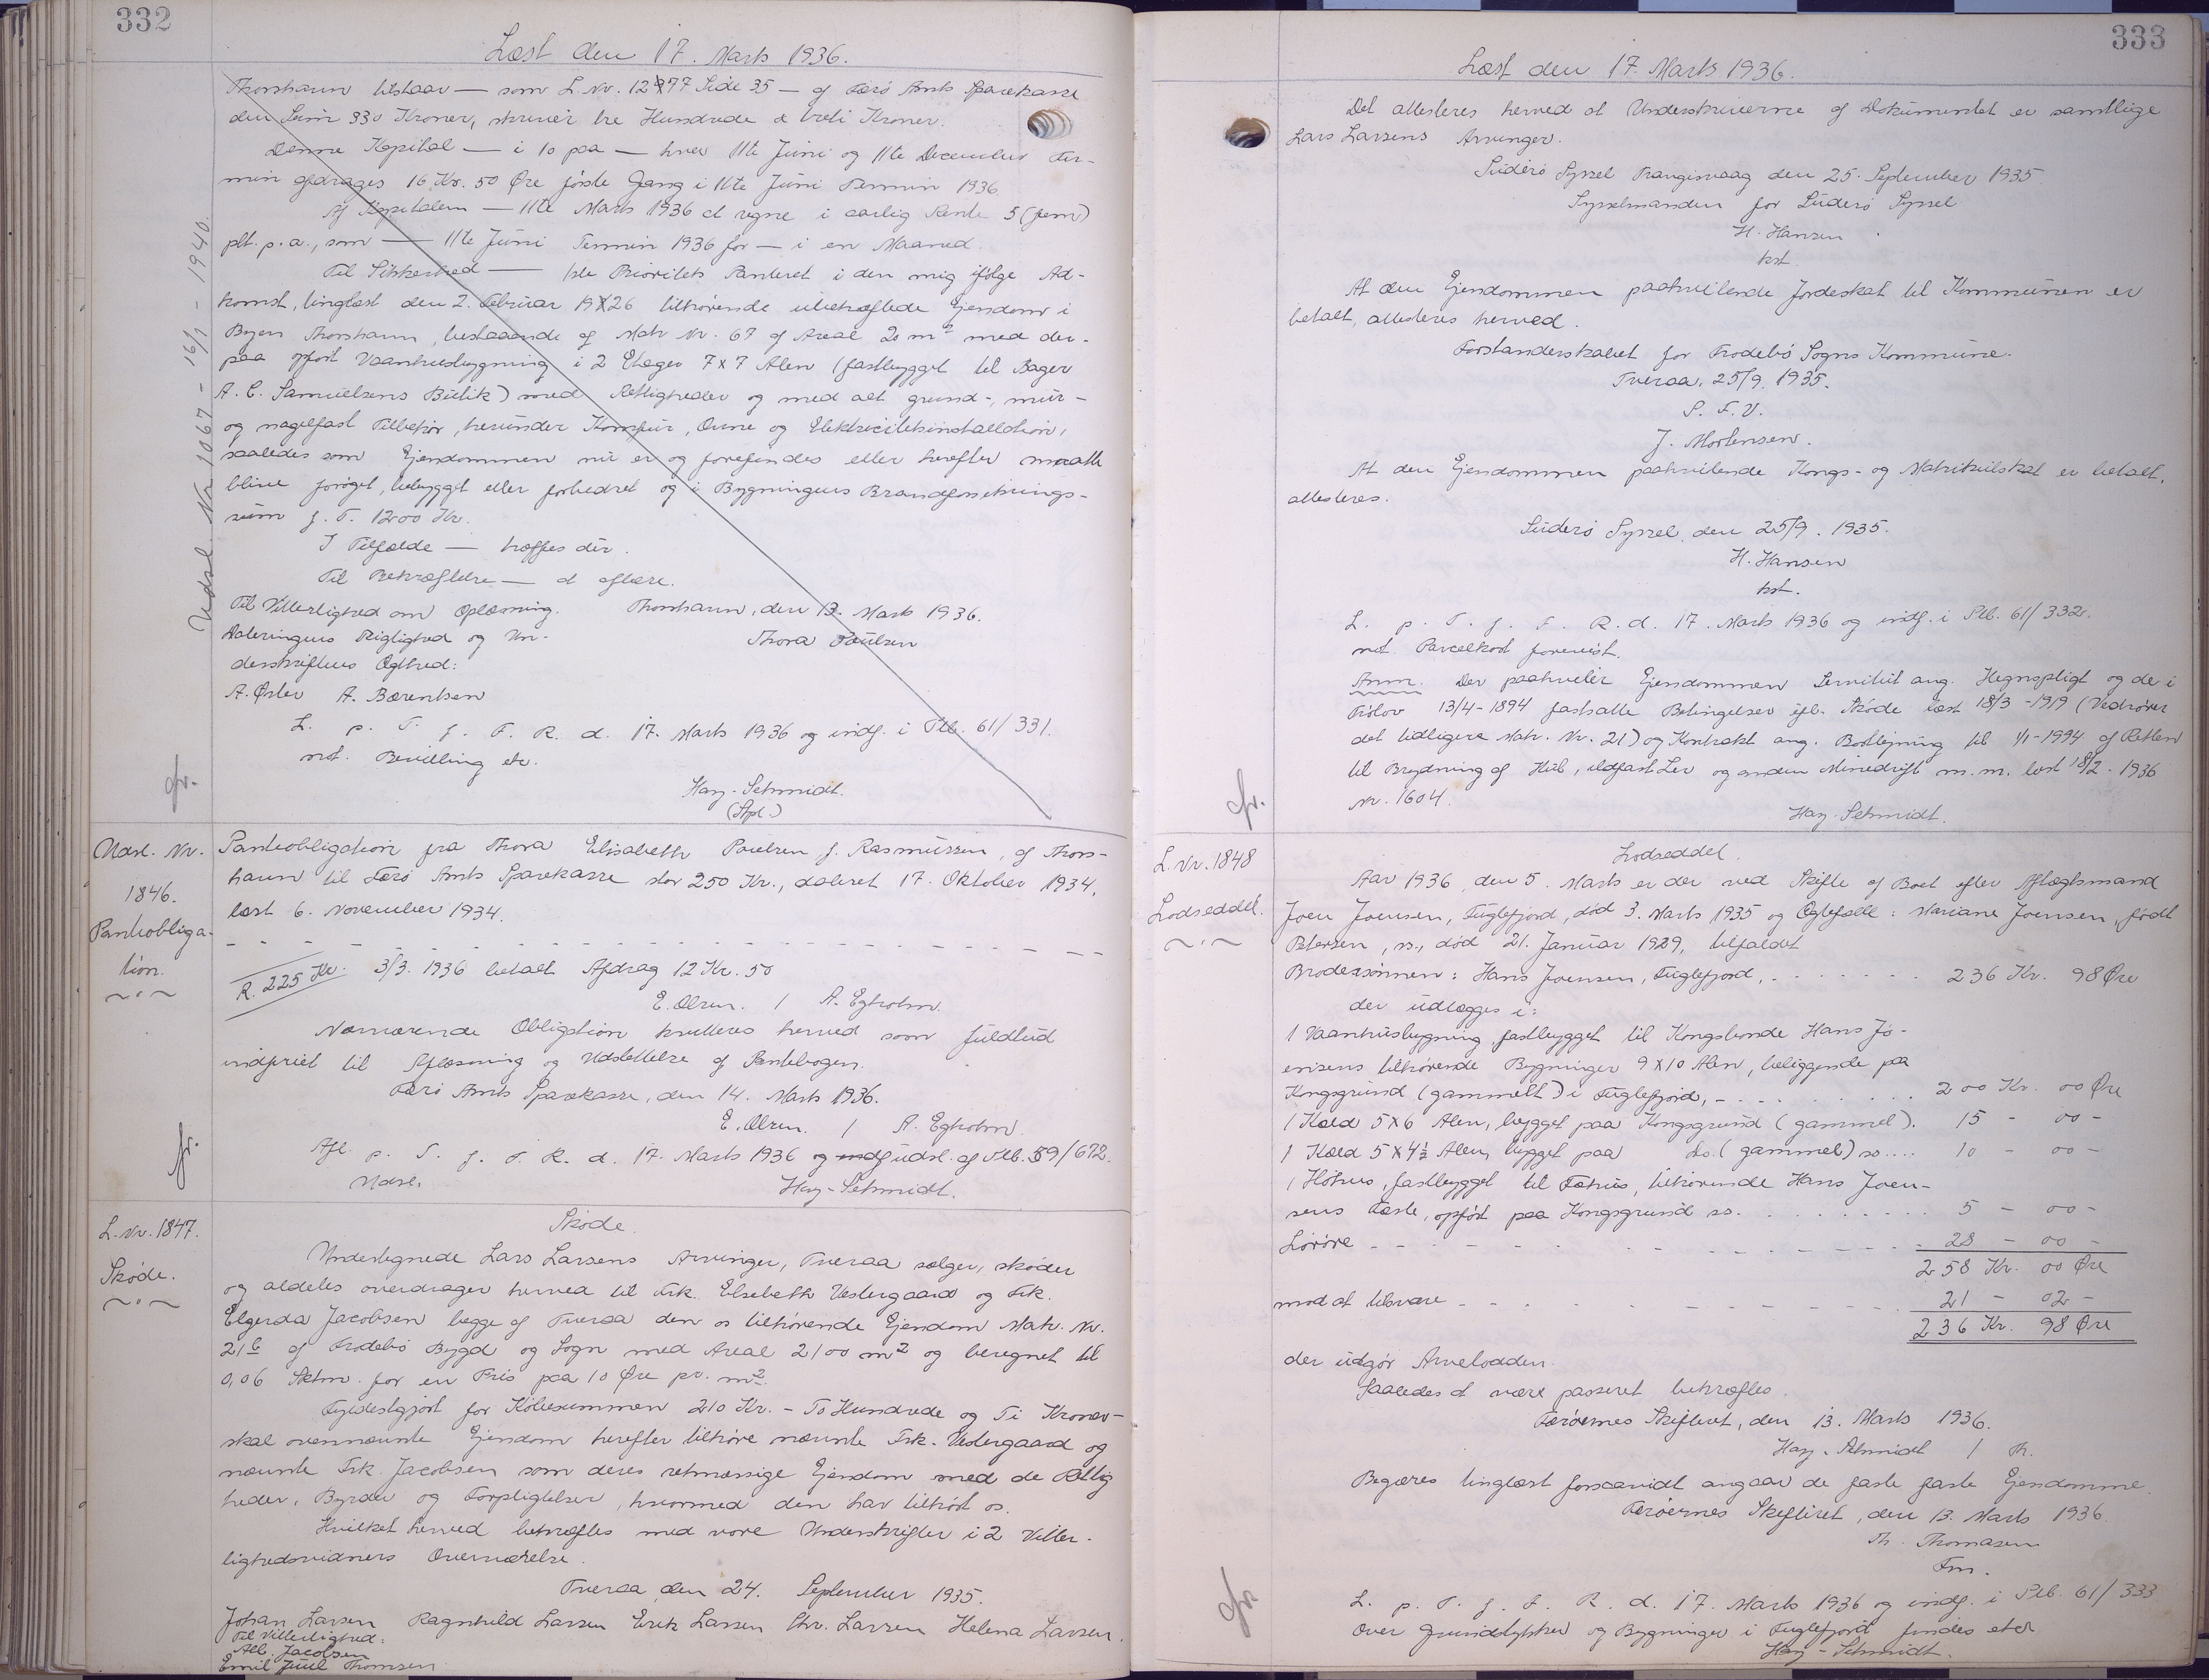 332
Læst den 17. Marts 1936.
Thorshavn tilstaar — som L. Nr. 1277 Side 35 — af Færø Amts Sparekasse
den Sum 330 Kroner, skriver tre Hundrede & treti Kroner.
Denne Kapital — i 10 paa — hver 11te Juni og 11te December Ter-
min afdrages 16 Kr. 50 Øre første Gang i 11te Juni Termin 1936.
Af Kapitalen — 11te Marts 1936 at regne i aarlig Rente 5 (fem)
pCt. p. a., som — 11te Juni Termin 1936 for — i en Maaned.
Til Sikkerhed — 1ste Prioritets Panteret i den mig ifølge Ad-
komst, tinglæst den 2. Februar 1926 tilhørende ubehæftede Ejendom i
Byen Thorshavn, bestaaende af Matr. Nr. 67 af Areal 20 m² med der-
paa opført Vaanhusbygning i 2 Etager 7 x 7 Alen (fastbygget til Bager
A. C. Samuelsens Butik) med Rettigheder og med alt grund-, mur-
og nagelfast Tilbehør, herunder Komfur, Ovne og Elektricitetsinstallation,
saaledes som Ejendommen nu er og forefindes eller herefter maatte
blive forøget, bebygget eller forbedret og i Bygningens Brandforsikrings-
sum f. T. 1200 Kr.
I Tilfælde — træffes dér.
Til Bekræftelse — at aflæse.
Til Vitterlighed om Oplæsning. Thorshavn, den 13. Marts 1936.
Dateringens Rigtighed og Un- Thora Poulsen
derskriftens Ægthed:
A. Øster A. Bærentsen
L. p. T. f. F. R. d. 17. Marts 1936 og indf. i Ptb. 61/331.
not. Bevilling etc.
Hay-Schmidt.
(Kpl.)
Udsl. Nr. 1067 - 16/1 - 1940.
fr.
Udsl. Nr.
1846.
Panteobliga-
tion.
Panteobligation fra Thora Elisabeth Poulsen f. Rasmussen, af Thors-
havn til Færø Amts Sparekasse stor 250 Kr., dateret 17. Oktober 1934,
læst 6. November 1934.
R. 225 Kr. 3/3. 1936 betalt Afdrag 12 Kr. 50
E. Olsen. / A. Egholm.
Nærværende Obligation kvitteres herved som fuldtud
indfriet til Aflæsning og Udslettelse af Pantebogen.
Færø Amts Sparekasse, den 14. Marts 1936.
E. Olsen. / A. Egholm.
Afl. p. T. f. F. R. d. 17. Marts 1936 og indf udsl. af Ptb. 59/672.
Udsl. Hay-Schmidt.
fr.
L. Nr. 1847.
Skøde.
Skøde.
Undertegnede Lars Larsens Arvinger, Tveraa sælger, skøder
og aldeles overdrager herved til Frk. Elsebeth Vestergaard og Frk.
Elgerda Jacobsen begge af Tveraa den os tilhørende Ejendom Matr. Nr.
21 c af Frodebø Bygd og Sogn med Areal 2100 m² og beregnet til
0,06 Sktm. for en Pris paa 10 Øre pr. m².
Fyldestgjort for Købesummen 210 Kr. - To Hundrede og Ti Kroner -
skal ovennævnte Ejendom herefter tilhøre nævnte Frk. Vestergaard og
nævnte Frk. Jacobsen som deres retmæssige Ejendom med de Rettig
heder, Byrder og Forpligtelser, hvormed den har tilhørt os.
Hvilket herved bekræftes med vore Underskrifter i 2 Vitter-
lighedsvidners Overværelse.
Tveraa den 24. September 1935.
Johan Larsen Ragnhild Larsen Erik Larsen Chr. Larsen Helena Larsen.
Til Vitterlighed:
Alb. Jacobsen
Emil Juul Thomsen
333
Læst den 17. Marts 1936.
Det attesteres herved at Underskriverne af Dokumentet er samtlige
Lars Larsens Arvinger.
Suderø Syssel Trangisvaag den 25. September 1935.
Sysselmanden for Suderø Syssel
H. Hansen
kst.
At den Ejendommen paahvilende Jordeskat til Kommunen er
betalt, attesteres herved.
Forstanderskabet for Frodebø Sogns Kommune.
Tveraa, 25/9. 1935.
P. F. V.
J. Mortensen.
At den Ejendommen paahvilende Kongs- og Matrikulskat er betalt,
attesteres.
Suderø Syssel, den 25/9. 1935.
H. Hansen
kst.
L. p. T. f. F. R. d. 17. Marts 1936 og indf. i Ptb. 61/332.
not. Parcelkort forevist.
Anm. Der paahviler Ejendommen Servitut ang. Hegnspligt og de i
Frølov 13/4-1894 fastsatte Betingelser ifl. Skøde læst 18/3-1919 (Vedrører
det tidligere Matr. Nr. 21) og Kontrakt ang. Bortlejning til 1/1-1994 af Retten
til Brydning af Kul, ildfast Ler og anden Minedrift m. m. læst 18/2-1936
Nr. 1604.
Hay-Schmidt.
fr.
L. Nr. 1848
Lodseddel.
Lodseddel.
Aar 1936, den 5. Marts er der ved Skifte af Boet efter Aftægtsmand
Joen Joensen, Fuglefjord, død 3. Marts 1935 og Ægtefælle: Mariane Joensen, født
Petersen, ss., død 21. Januar 1929, tilfaldet
Brodersønnen: Hans Joensen, Fuglefjord, . . . . . . . 236 Kr. 98 Øre
der udlægges i:
1 Vaanhusbygning, fastbygget til Kongsbonde Hans Jo-
ensens tilhørende Bygninger 9 x 10 Alen, beliggende paa
Kongsgrund (gammelt) i Fuglefjord, - . . . . . . 200 Kr. 00 Øre
1 Kæld 5 x 6 Alen, bygget paa Kongsgrund (gammel). 15 - 00 -
1 Kæld 5 x 4½ Alen, bygget paa do. (gammel) ss.... 10 - 00 -
1 Høhus, fastbygget til Fæhus, tilhørende Hans Joen-
sens Fæste, opført paa Kongsgrund ss. . . . . . . . 5 - 00 -
Løsøre - - - - - - - - - - - 28 - 00 -
258 Kr. 00 Øre
mod at tilsvare - - - - - - - - - 21 - 02 -
236 Kr. 98 Øre
der udgør Arvelodden.
Saaledes at være passeret bekræftes.
Færøernes Skifteret, den 13. Marts 1936.
Hay-Schmidt / Th.
Begæres tinglæst forsaavidt angaar de faste faste Ejendomme.
Færøernes Skifteret, den 13. Marts 1936.
Th. Thomasen
Fm.
L. p. T. f. F. R. d. 17. Marts 1936 og indf. i Ptb. 61/333
Over Grundstykker og Bygninger i Fuglefjord findes etc
Hay-Schmidt.
fr.